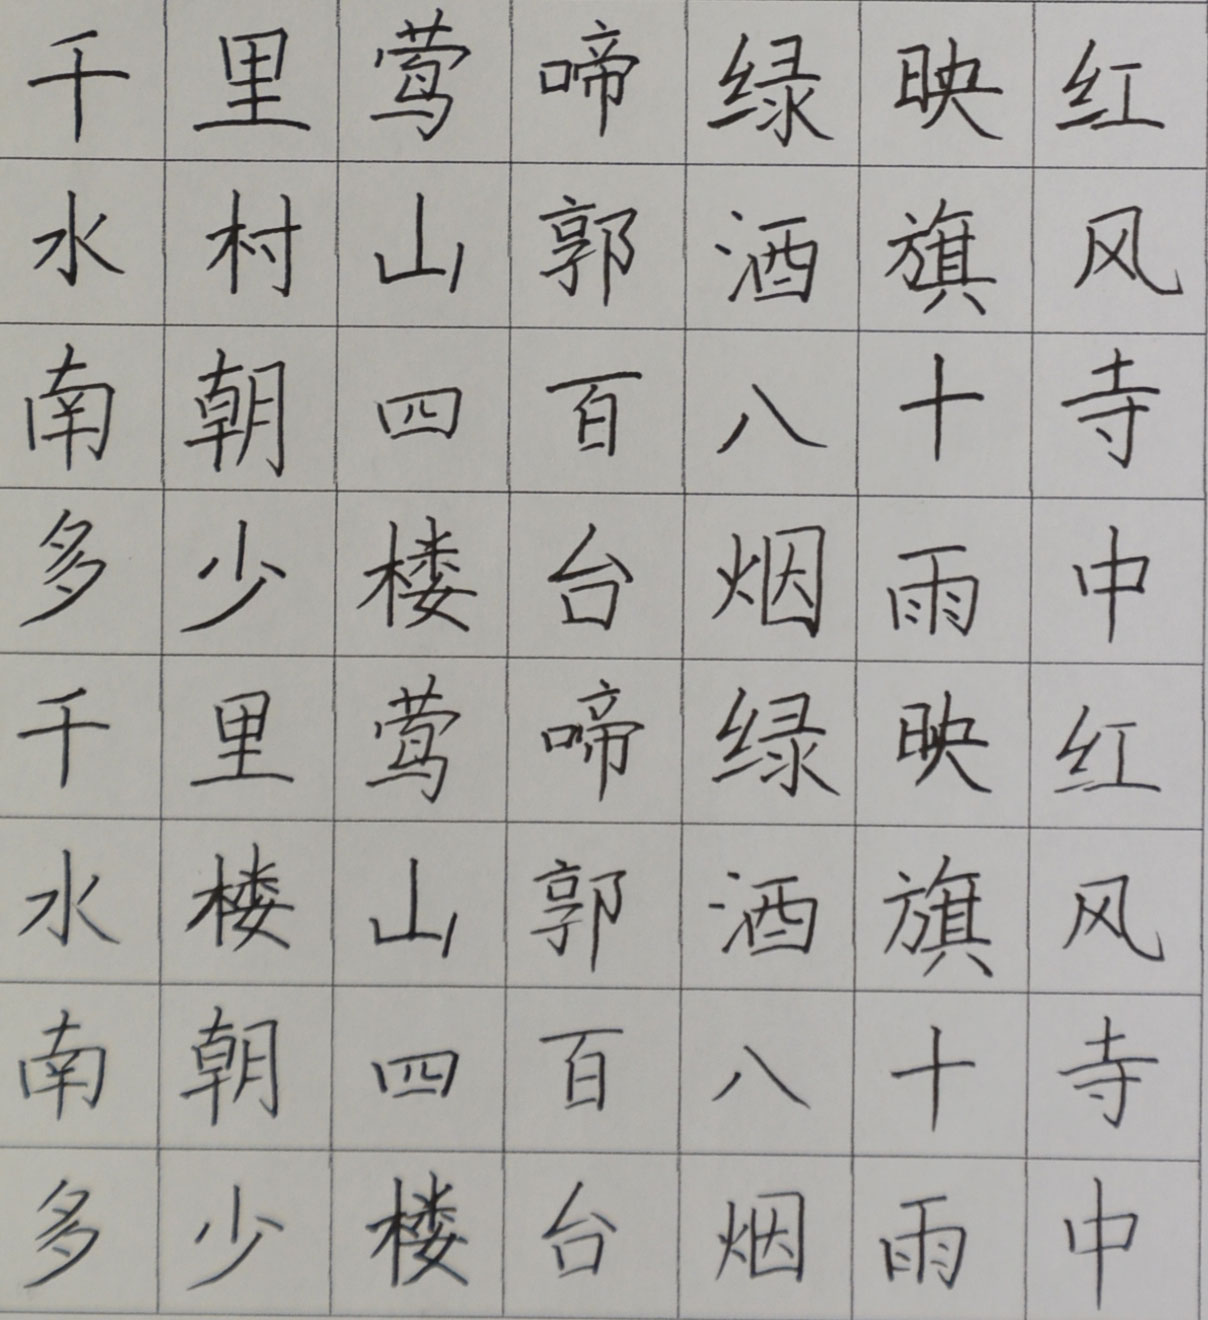 千里莺啼绿映红
水村山郭酒旗风
南朝四百八十寺
多少楼台烟雨中
千里莺啼绿映红
水楼山郭酒旗风
南朝四百八十寺
多少楼台烟雨中